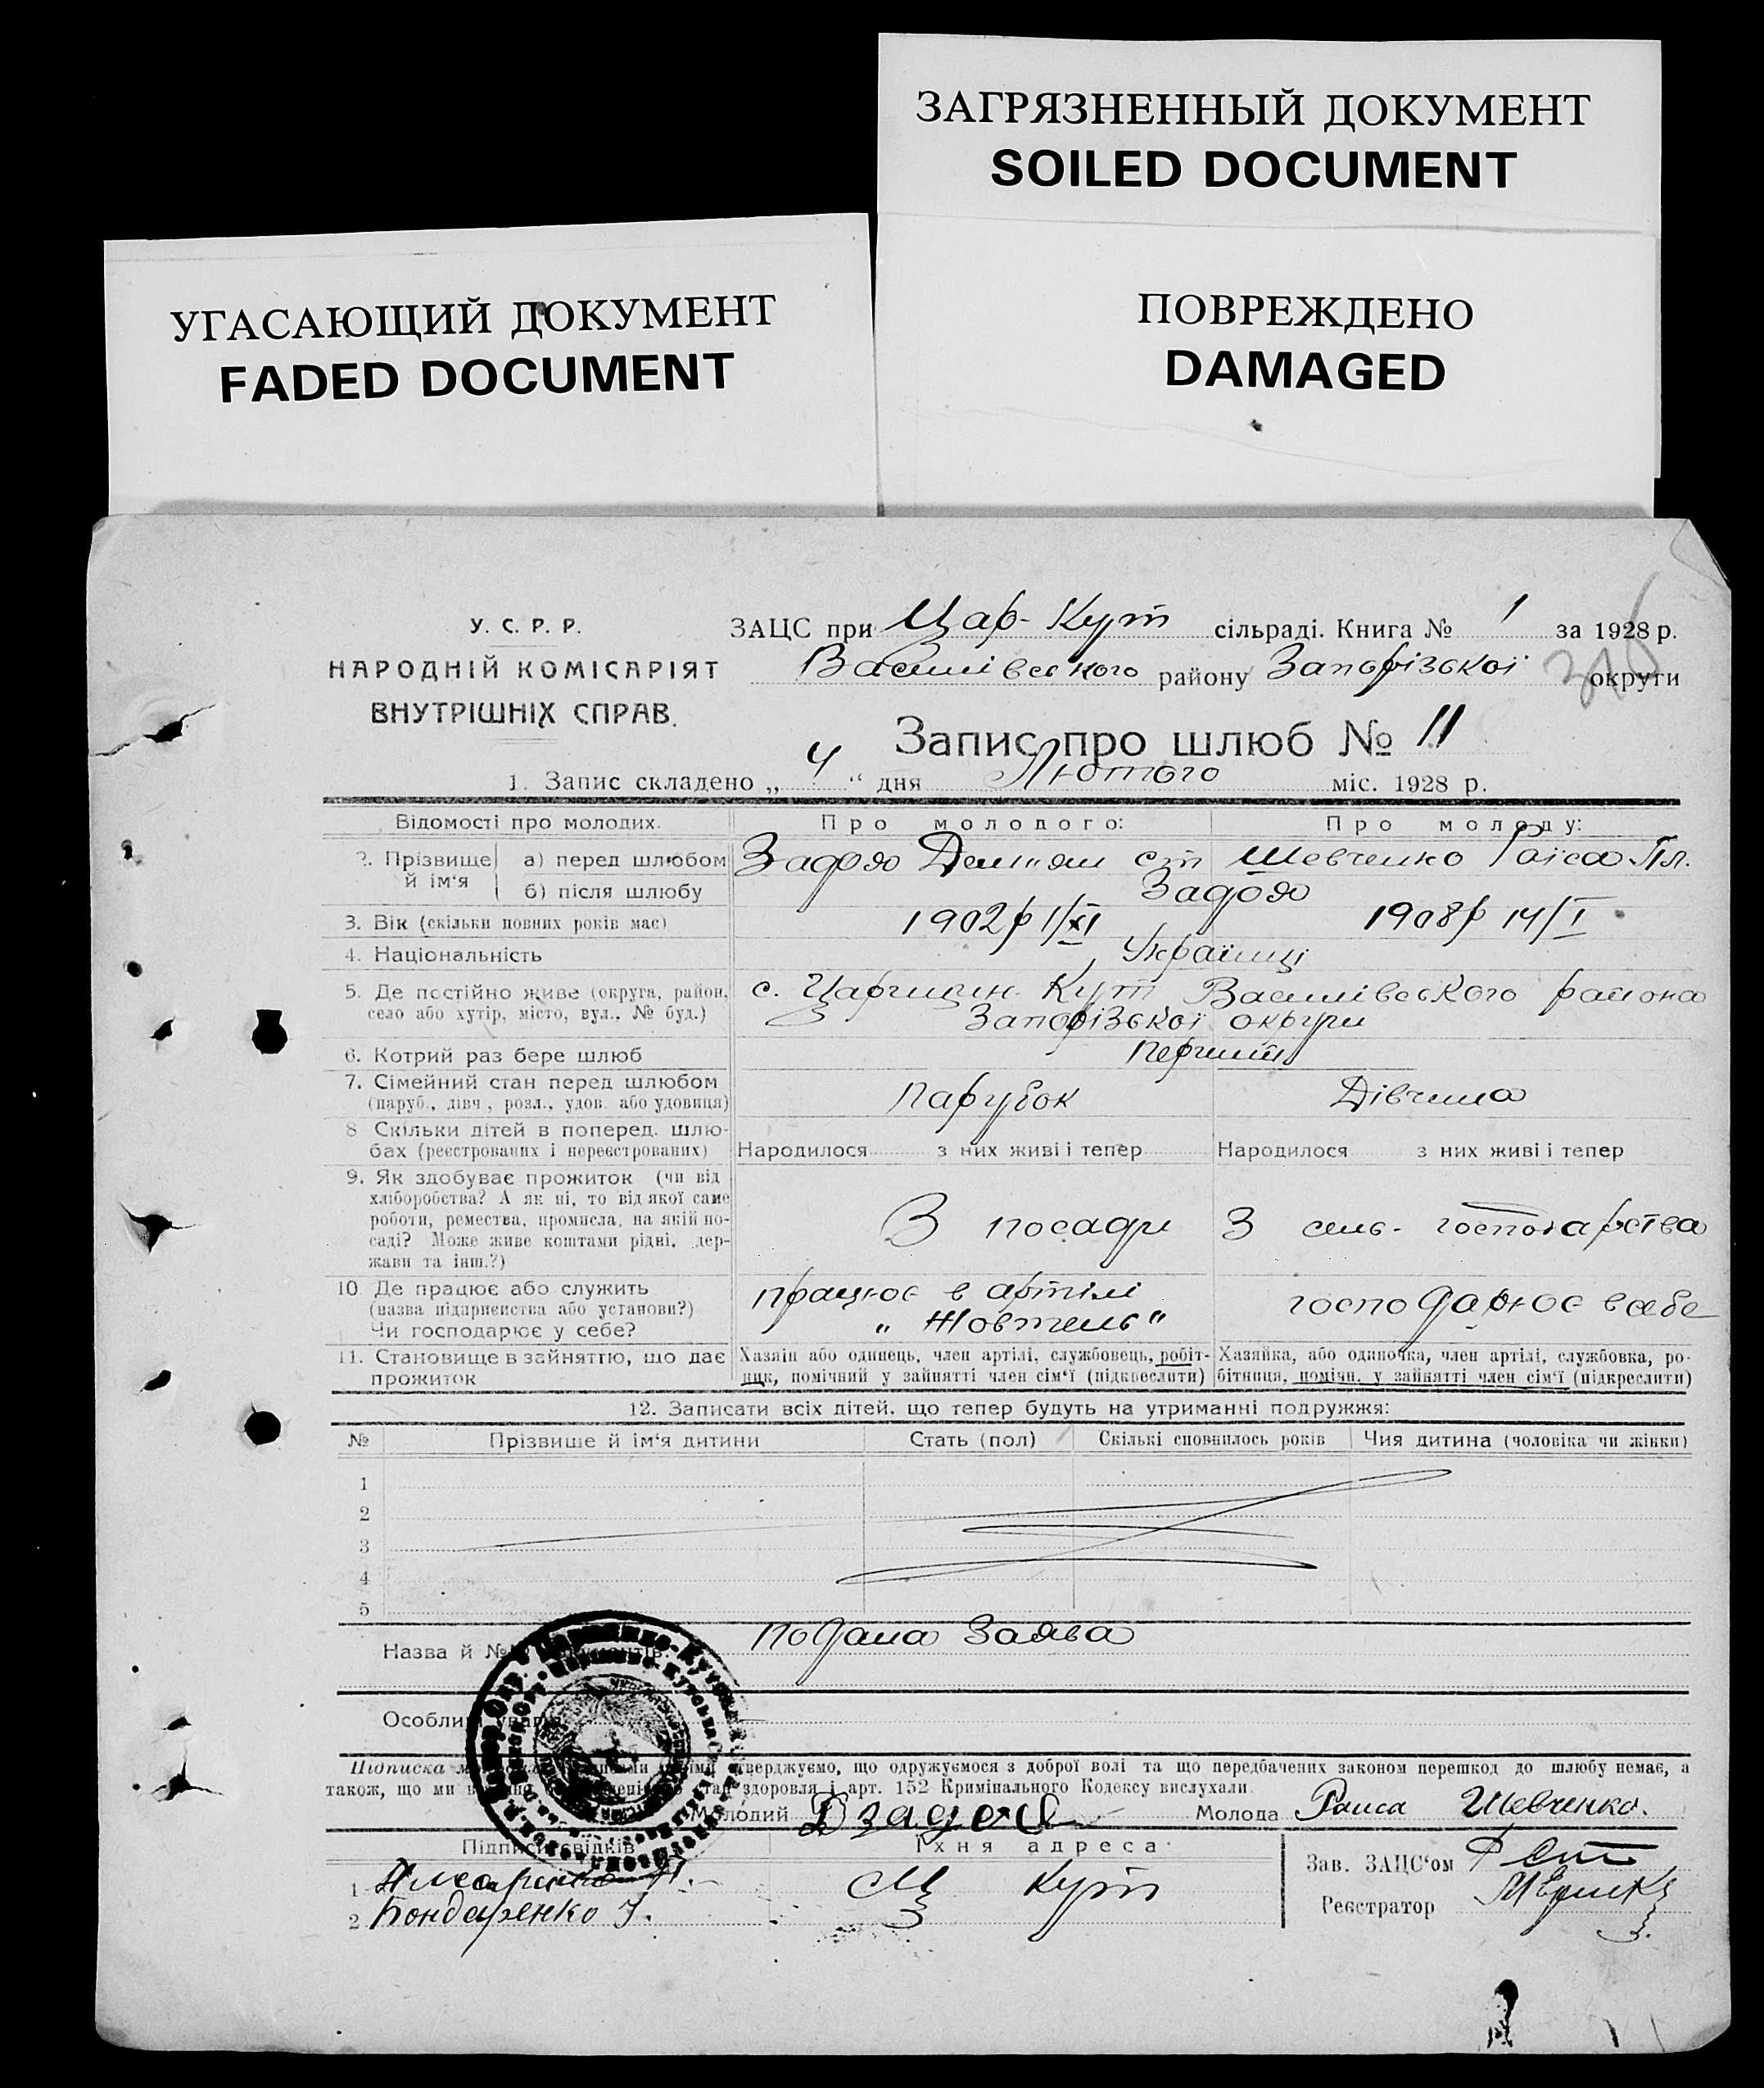 ЗАГРЯЗНЕННЫЙ ДОКУМЕНТ
SOILED DOCUMENT
УГАСАЮЩИЙ ДОКУМЕНТ
FADED DOCUMENT
ПОВРЕЖДЕНО
DAMAGED
У. С. Р. Р.
НАРОДНІЙ КОМІСАРІЯТ
ВНУТРІШНІХ СПРАВ.
ЗАЦС при Цар-Кут сільраді. Книга № 1 за 1928 р.
Василівського району Запорізької округи
Запис про шлюб № 11
1. Запис складено „ 4 “ дня Лютого міс. 1928 р.
Відомості про молодих. Про молодого: Про молоду:
2. Прізвище й ім‘я а) перед шлюбом Задоя Демʼян Ст Шевченко Раїса Пл.
б) після шлюбу Задоя
3. Вік (скільки повних років має) 1902р 1/XI 1908р 14/I
4. Національність Українці
5. Де постійно живе (округа, район, с. Царицин. Кут Василівського района
село або хутір, місто, вул., № буд.) Запорізької округи
6. Котрий раз бере шлюб Перший
7. Сімейний стан перед шлюбом Парубок Дівчина
(паруб., дівч., розл., удов. або удовиця)
8 Скільки дітей в поперед. шлю-
бах (реєстрованих і нереєстрованих) Народилося з них живі і тепер Народилося з них живі і тепер
9. Як здобуває прожиток (чи від
хліборобства? А як ні, то від якої саме
роботи, ремества, промисла, на якій по- З посади З сель- господарства
саді? Може живе коштами рідні, дер-
жави та інш.?)
10 Де працює або служить працює в артілі
(назва підприємства або установи?) „ Жовтень“ господарює в себе
Чи господарює у себе?
11. Становище в зайняттю, що дає Хазяїн або одинець, член артілі, службовець, робіт- Хазяйка, або одиночка, член артілі, службовка, ро-
прожиток ник, помічний у зайнятті член сім‘ї (підкреслити) бітниця, помічн. у зайнятті член сім‘ї (підкреслити)
12. Записати всіх дітей, що тепер будуть на утриманні подружжя:
№ Прізвише й ім‘я дитини Стать (пол) Скількі сповнилось років Чия дитина (чоловіка чи жінки)
1
2
3
4
5
Назва й №№ Подана Заява
Особливі уваги
Підписка твержуємо, що одружуємося з доброї волі та що передбачених законом перешкод до шлюбу немає, а
також, що ми стан здоровля і арт. 152 Кримінального Кодексу вислухали.
Молодий Д Задоя Молода Раиса Шевченко.
Підписи свідків Їхня адреса Зав. ЗАЦС‘ом
1 Ц Кут
2 Бондаренко І. Реєстратор